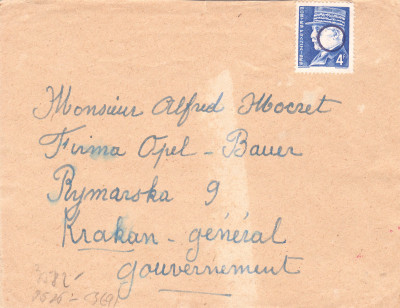 4
Monsieur Alfred Mocret
Firma Opel - Bauer
Rymarska 9
Krakau - général
gouvernement